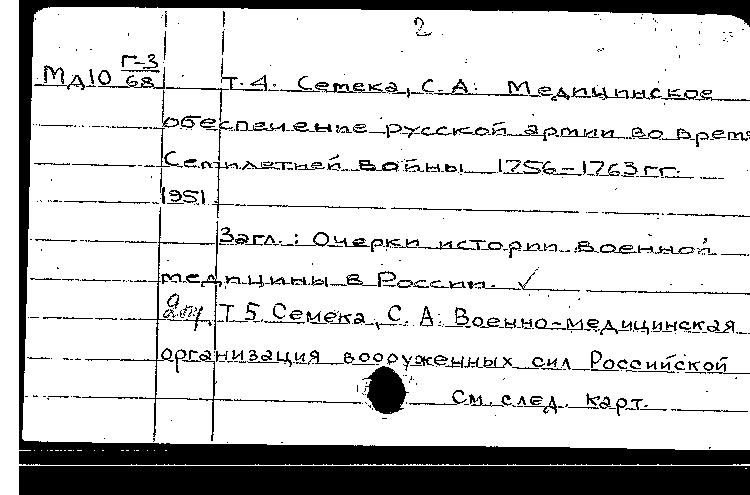 2
МД10 Г-3/68 Т. 4. Семека, С. А: Медицинское
обеспечение русской армии во время
Семилетней войны 1756-1763 гг.
1951
Загл.: Очерки истории военной
медицины в России. ✓
Т 5 Семека, С. А: Военно-медицинская
организация вооруженных сил Российской
См. след. карт.